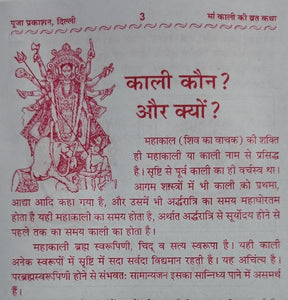 पूजा प्रकाशन, दिल्ली 3 मां काली की व्रत कथा
काली कौन?
और क्यों?
महाकाल (शिव का वाचक) की शक्ति
ही महाकाली या काली नाम से प्रसिद्ध
है। सृष्टि से पूर्व काली का ही वर्चस्व था।
आगम शास्त्रों में भी काली को प्रथमा,
आद्या आदि कहा गया है, और उसमें भी अर्द्धरात्रि का समय महाघोरतम
होता है यही महाकाली का समय होता है, अर्थात अर्द्धरात्रि से सूर्योदय होने से
पहले तक का समय काली का होता है।
महाकाली ब्रह्म स्वरूपिणी, चिद् व सत्य स्वरूपा है। यही काली
अनेक स्वरूपों में सृष्टि में सदा सर्वदा विद्यमान रहती है। यह अचिंत्य है।
परब्रह्मस्वरूपिणी होने से संभवतः सामान्यजन इसका सान्निध्य पाने में असमर्थ
हैं।